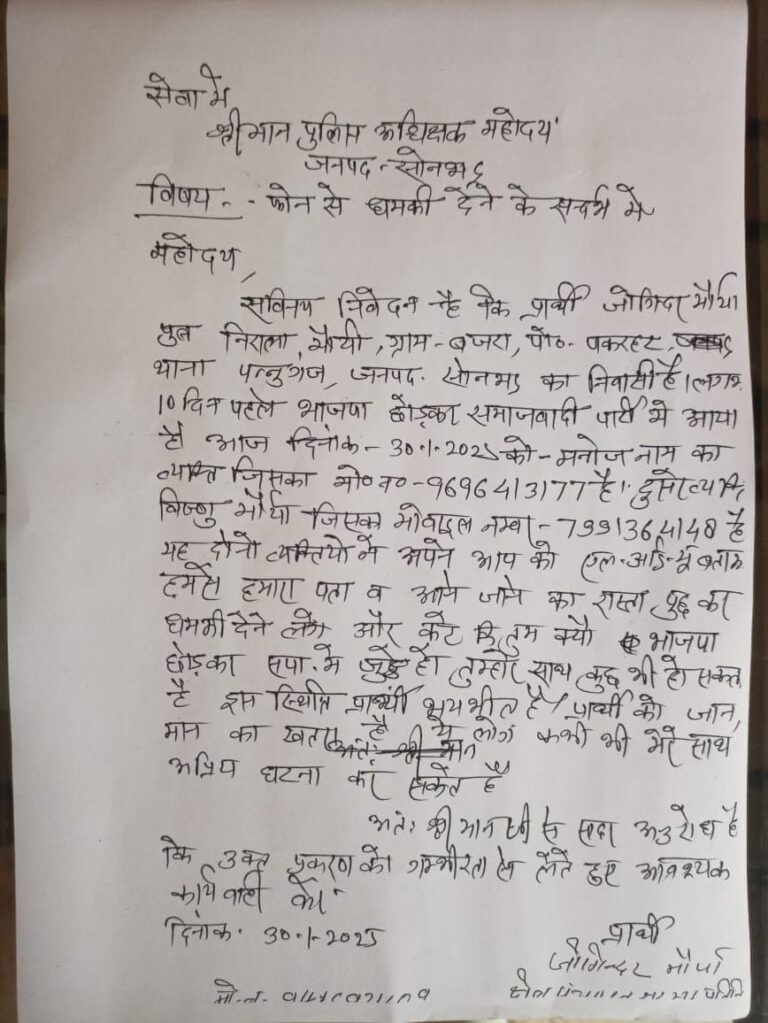 सेवा में
श्रीमान पुलिस अधिक्षक महोदय
जनपद - सोनभद्र
विषय - - फोन से धमकी देने के सदर्भ में
महोदय,
सविनय निवेदन है कि प्रार्थी जोगिदर मौर्या
पुत्र निराला मौर्या, ग्राम - बजरा, पो०- पकरहट
थाना पन्नुगंज, जनपद- सोनभद्र का निवासी है। लगभग
10 दिन पहले भाजपा छोड़कर समाजवादी पार्टी में आया
है आज दिनांक - 30.1.2025 को - मनोज नाम का
व्यक्ति जिसका मो० न० - 9696413177 है। दुसरे व्यक्ति
विष्णु मौर्या जिसका मोवाइल नम्बर - 7991364148 है
यह दोनो व्यक्तियो ने अपने आप को एल.आई.यू बताकर
हमसे हमारा पता व आने जाने का रास्ता पुछ कर
धमकी देने लगे और कहे कि तुम क्यो भाजपा
छोड़कर सपा में जुड़े हो तुम्हारे साथ कुछ भी हो सकता
है इस स्थिति प्रार्थी भयभीत है। प्रार्थी को जान,
माल का खतरा है ये लोग कभी भी मेरे साथ
अतः श्री मान
अप्रिय घटना कर सकते है
अतः श्री मान जी से सादर अनुरोध है
कि उक्त प्रकरण को गम्भीरता से लेते हुए आवश्यक
कार्यवाही करे।
दिनांक- 30.1.2025
प्रार्थी
जोगिन्दर मौर्या
मो.न.